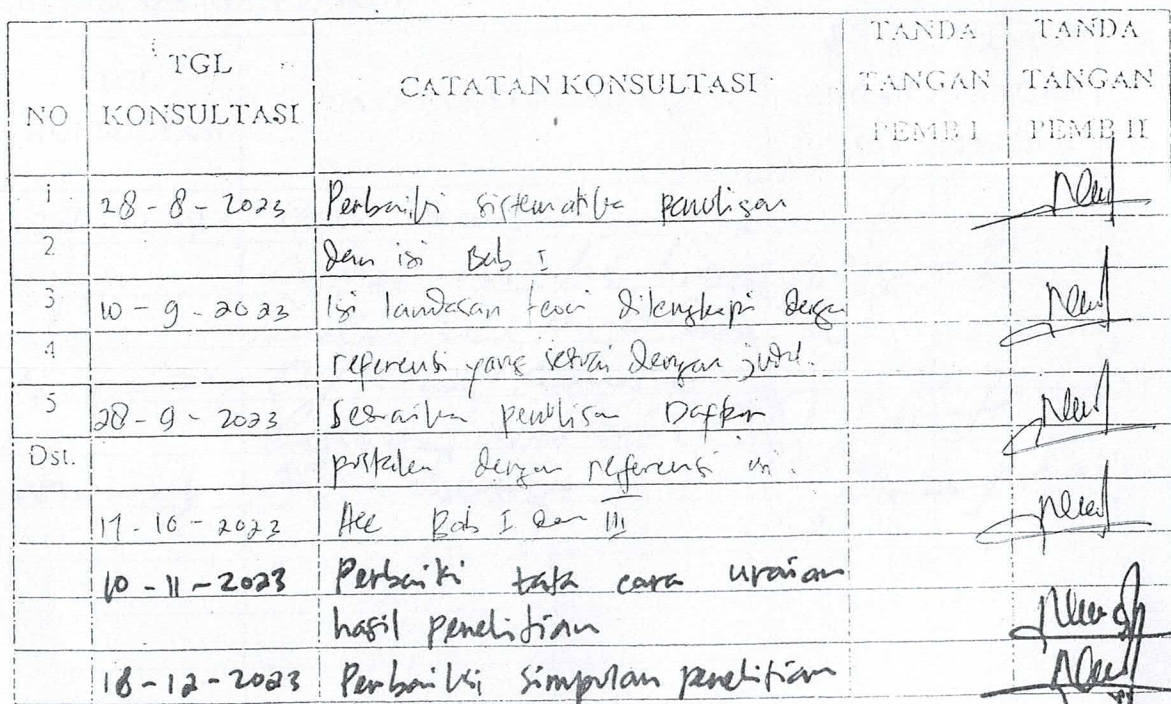 NO TGL KONSULTASI CATATAN KONSULTASI TANDA TANGAN PEMB I TANDA TANGAN PEMB II
1 28-8-2023 Perbaiki sistematika penulisan
2 dan isi Bab I
3 10-9-2023 Isi landasan teori dilengkapi dengan
4 referensi yang sesuai dengan judul.
5 28-9-2023 Sesuaikan penulisan Daftar
Dst. pustaka dengan referensi isi.
17-10-2023 Acc Bab I dan III
10-11-2023 Perbaiki tata cara uraian
hasil penelitian
18-12-2023 Perbaiki simpulan penelitian